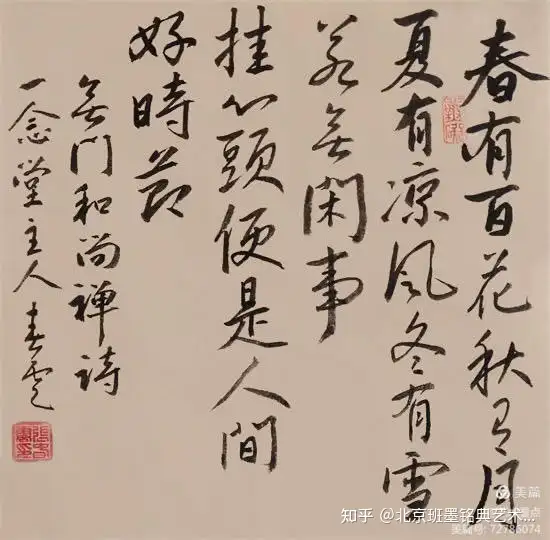 春有百花秋有月
夏有涼风冬有雪
若無閑事
挂心頭便是人間
好時節
無門和尚禅詩
一念堂主人春雲
美篇
知乎 @北京班墨铭典艺术...
美篇号: 72786074